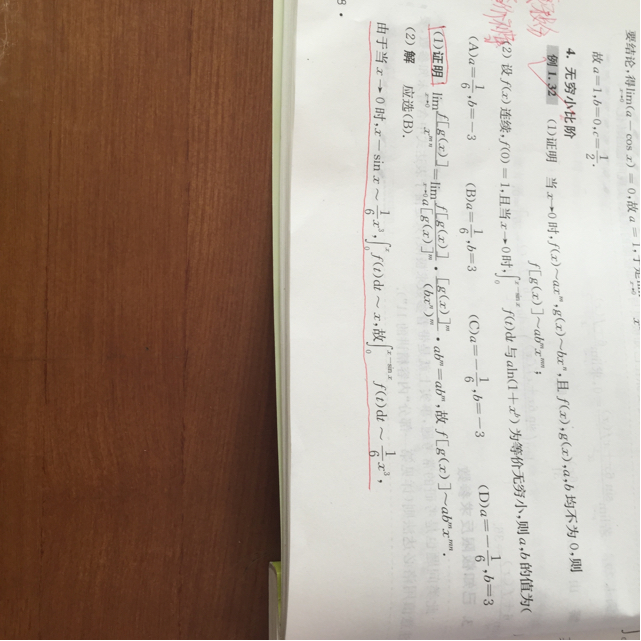 要结论,得lim(a-cos x)=0,故
故a=1,b=0,c=1/2.
4. 无穷小比阶
例1.33 (1)证明 当x→0时,f(x)~ax^m,g(x)~bx^n,且f(x),g(x),a,b均不为0,则
f[g(x)]~ab^m x^{mn};
(2) 设f(x)连续,f(0)=1,且当x→0时,∫_0^{x-sin x} f(t)dt与aln(1+x^b)为等价无穷小,则a,b的值为(
(A)a=1/6,b=-3 (B)a=1/6,b=3 (C)a=-1/6,b=-3 (D)a=-1/6,b=3
(1)证明 lim_{x→0} f[g(x)]/x^{mn}=lim_{x→0} f[g(x)]/a[g(x)]^m·[g(x)]^m/(bx^n)^m·ab^m=ab^m,故f[g(x)]~ab^m x^{mn}.
(2) 解 应选(B).
由于当x→0时,x-sin x~1/6x^3,∫_0^x f(t)dt~x,故∫_0^{x-sin x} f(t)dt~1/6x^3,
8.